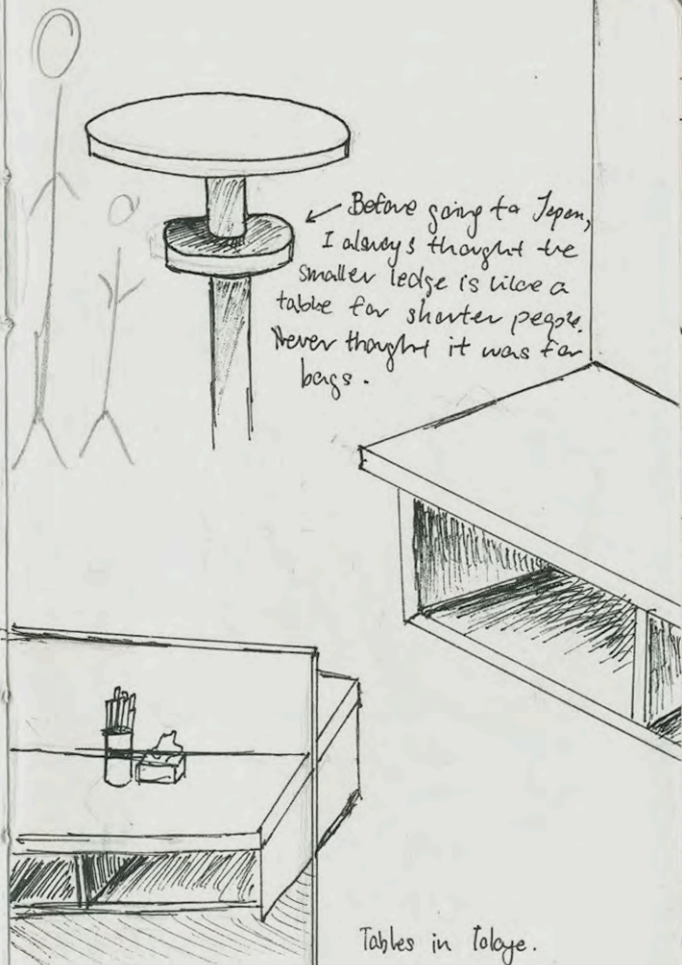 Before going to Japan,
I always thought the
smaller ledge is like a
table for shorter people.
Never thought it was for
bags.
Tables in Tokyo.